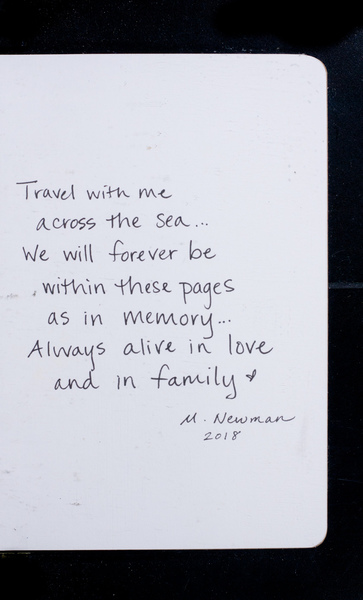 Travel with me
across the sea...
We will forever be
within these pages
as in memory...
Always alive in love
and in family
M. Newman
2018